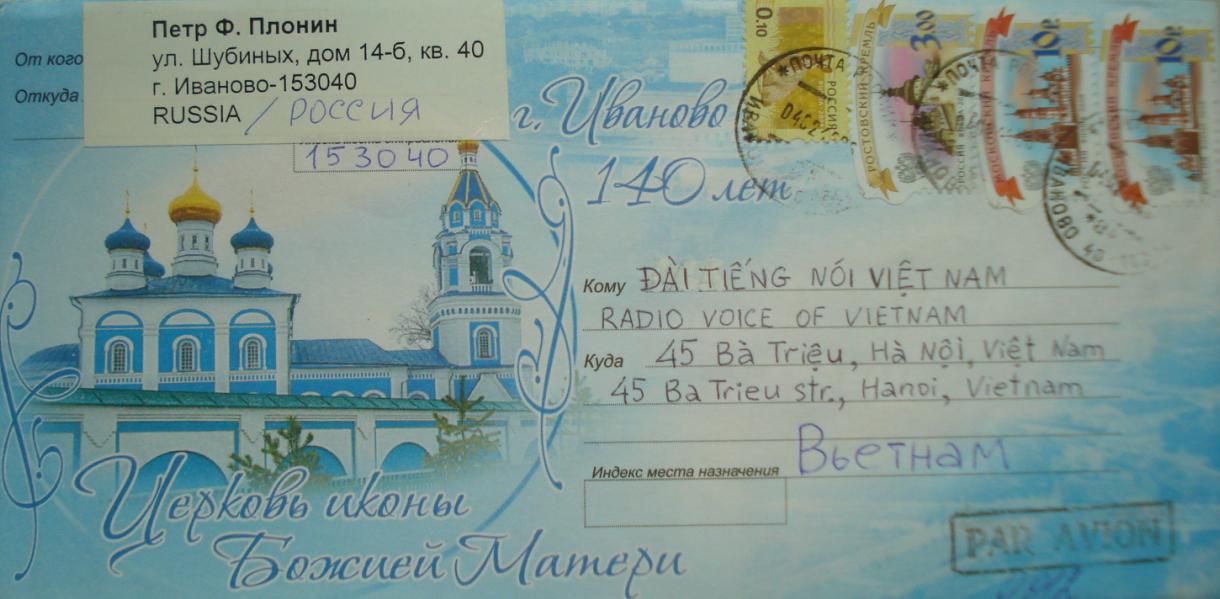 От кого
Откуда
Петр Ф. Плонин
ул. Шубиных, дом 14-б, кв. 40
г. Иваново-153040
RUSSIA / РОССИЯ
153040
г. Иваново
140 лет
0.10
РОССИЯ
РОСТОВСКИЙ КРЕМЛЬ
3.00
МОСКОВСКИЙ КРЕМЛЬ
10 Р.
10 Р.
ПОЧТА
Кому ĐÀI TIẾNG NÓI VIỆT NAM
RADIO VOICE OF VIETNAM
Куда 45 Bà Triệu, Hà Nội, Việt Nam
45 Ba Trieu str., Hanoi, Vietnam
Вьетнам
Индекс места назначения
PAR AVION
Церковь иконы
Божией Матери